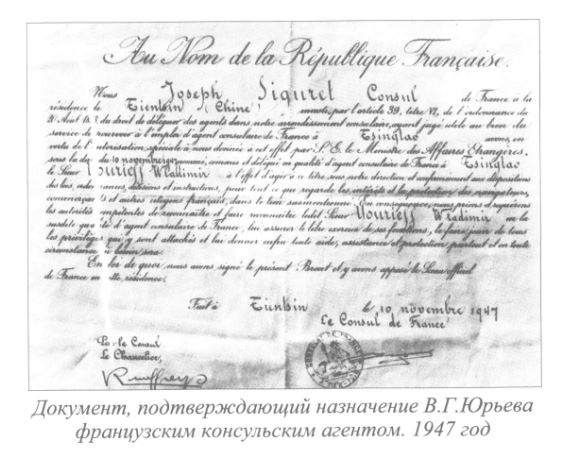 Au Nom de la République Française.
Nous Joseph Siguret Consul de France à la
résidence de Tientsin (Chine) investi, par l'article 39, titre VI, de l'ordonnance du
20 Août 18 du droit de déléguer des agents dans notre arrondissement consulaire, ayant jugé utile au bien du
service de à l'emploi d'agent consulaire de France à Tsingtao avons, en
vertu de l'autorisation spéciale à nous donnée à cet effet par S. E. le Ministre des Affaires Etrangères,
sous la date du 10 novembre 1947 nommé, commis et délégué en qualité d'agent consulaire de France à Tsingtao
le Sieur Yourieff Wladimir à l'effet d'agir à ce titre, sous notre direction et conformément aux dispositions
des lois, ordonnances, décisions et instructions, pour tout ce qui regarde les intérêts et la protection des navigateurs,
commerçants et autres citoyens français, dans le lieu susmentionné. En conséquence, nous prions et requérons
les autorités compétentes de reconnaître et faire reconnaître ledit Sieur Yourieff Wladimir en la
susdite qualité d'agent consulaire de France, lui assurer le libre exercice de ses fonctions, le faire jouir de tous
les privilèges qui y sont attachés et lui donner enfin toute aide, assistance et protection partout et en toute
circonstance où besoin sera.
En foi de quoi, nous avons signé le présent Brevet et y avons apposé le Sceau officiel
de France en cette résidence.
Fait à Tientsin le 10 novembre 1947
Le Consul de France
Par le Consul
Le Chancelier,
Документ, подтверждающий назначение В.Г.Юрьева
французским консульским агентом. 1947 год